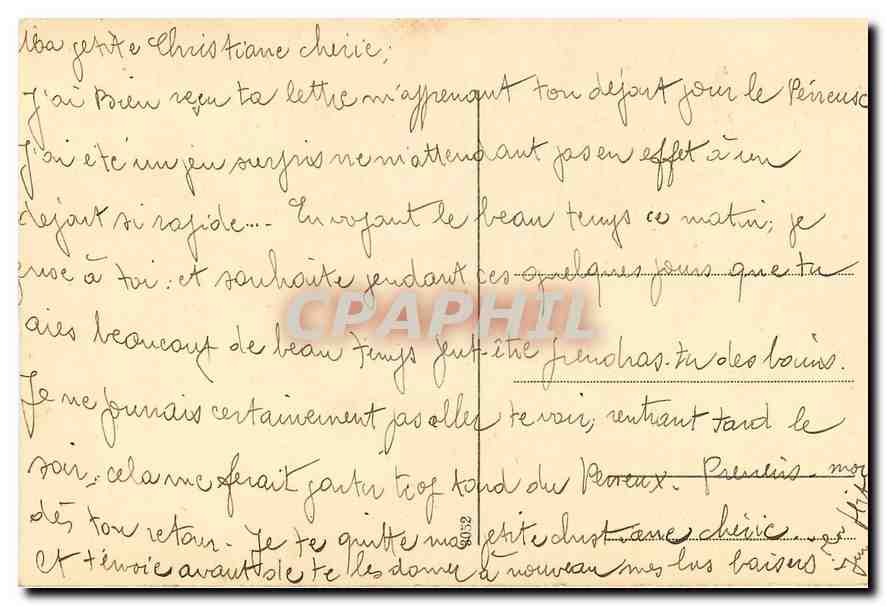 Ma petite Christiane chérie,
J'ai Bien reçu ta lettre m'apprenant ton départ pour le Perreux
J'ai été un peu surpris ne m'attendant pas en effet à un
départ si rapide.... En voyant le beau temps ce matin; je
pense à toi: et souhaite pendant ces quelques jours que tu
CPAPHIL
aies beaucoup de beau temps peut-être prendras-tu des bains.
Je ne pourrais certainement pas aller te voir, rentrant tard le
soir, cela me ferait partir trop tard du Perreux. Préviens-moi
dès ton retour. Je te quitte ma petite christiane chérie
8052
et t'envoie avant de te les donner à nouveau mes bons baisers